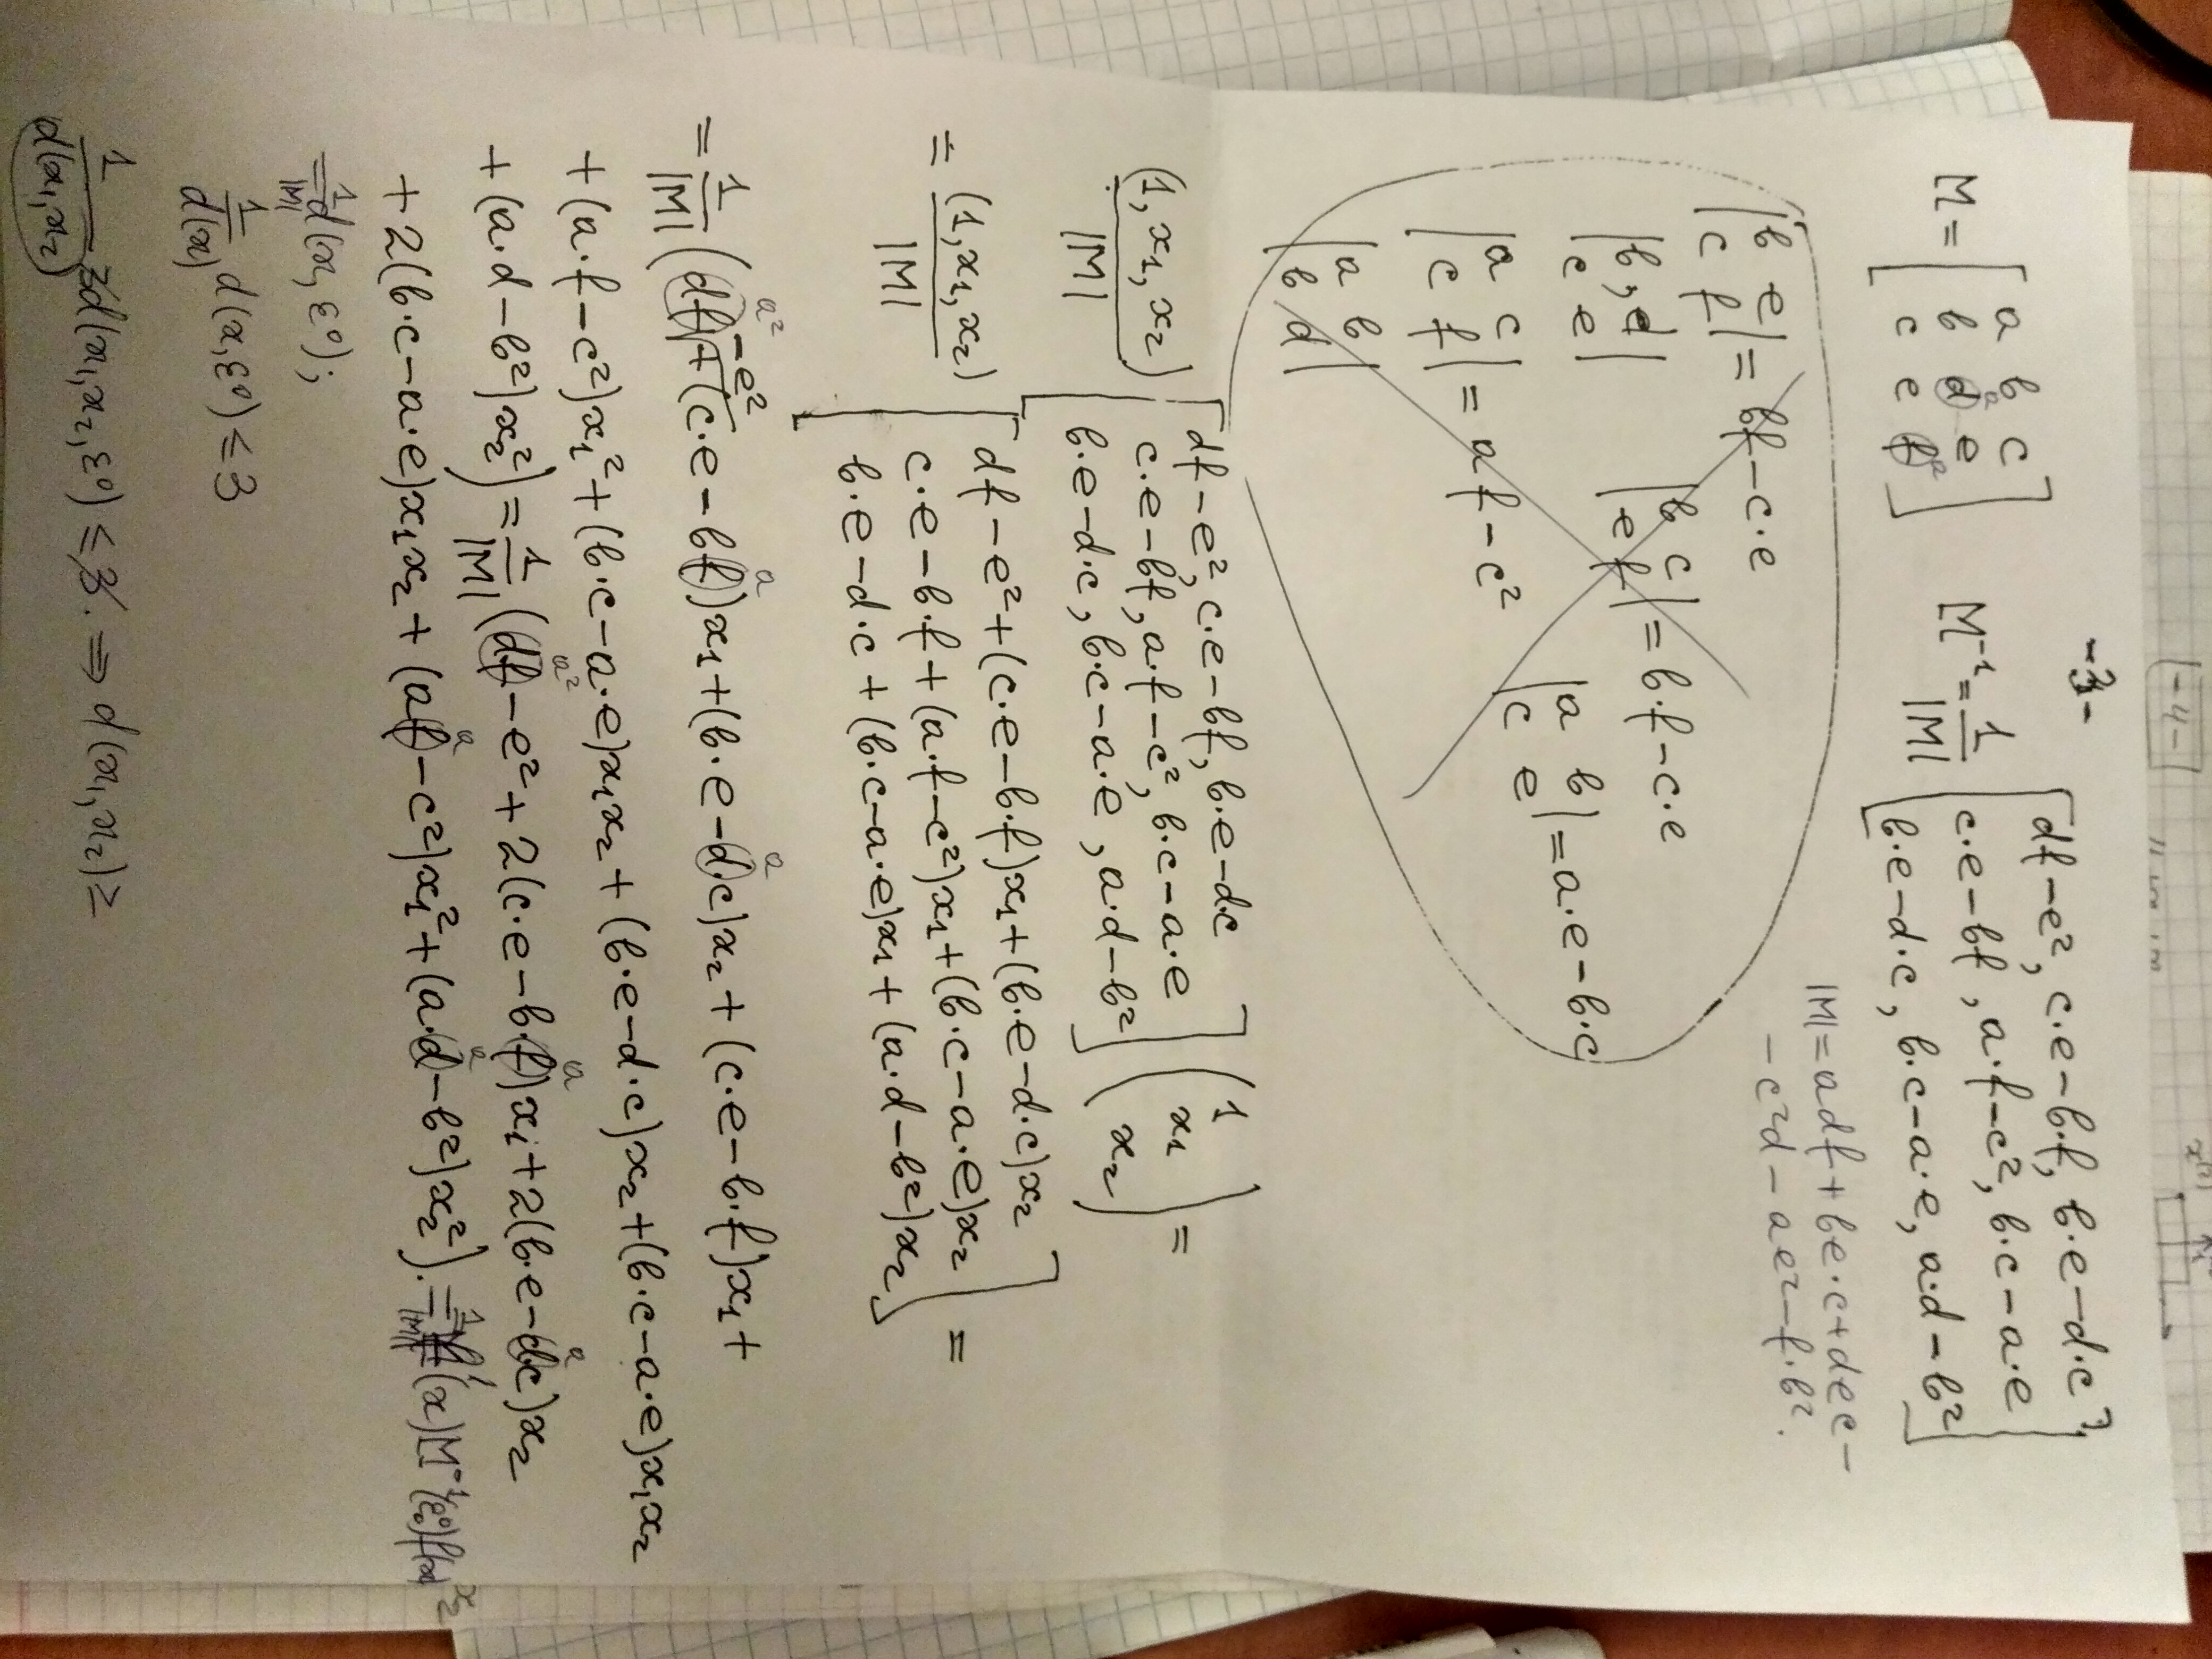 -4-
-3-
M = [ a b c
b d e
c e f ]
M⁻¹ = 1/|M| [ df-e², c·e-b·f, b·e-d·c
c·e-bf, a·f-c², b·c-a·e
b·e-d·c, b·c-a·e, a·d-b² ]
|M| = adf + be·c + dec -
- c²d - ae² - f·b².
|b e
c f| = bf-c·e
|b, d
c e|
|b c
e f| = b·f-c·e
|a b
c e| = a·e-b·c
|a c
c f| = af-c²
|a b
b d|
(1, x₁, x₂)/|M| [ df-e², c·e-bf, b·e-d·c
c·e-bf, a·f-c², b·c-a·e
b·e-d·c, b·c-a·e, a·d-b² ] ( 1
x₁
x₂ ) =
= (1, x₁, x₂)/|M| [ df-e²+(c·e-b·f)x₁+(b·e-d·c)x₂
c·e-b·f+(a·f-c²)x₁+(b·c-a·e)x₂
b·e-d·c+(b·c-a·e)x₁+(a·d-b²)x₂ ] =
= 1/|M| (df-e²+(c·e-bf)x₁+(b·e-d·c)x₂+(c·e-b·f)x₁+
+(a·f-c²)x₁²+(b·c-a·e)x₁x₂+(b·e-d·c)x₂+(b·c-a·e)x₁x₂
+(a·d-b²)x₂²) = 1/|M| (df-e²+2(c·e-b·f)x₁+2(b·e-dc)x₂
+2(b·c-a·e)x₁x₂+(af-c²)x₁²+(a·d-b²)x₂²). =
= 1/|M| d(x, ε⁰);
1/d(x) d(x, ε⁰) ≤ 3
1/d(x₁, x₂) 3d(x₁, x₂, ε⁰) ≤ 3. ⇒ d(x₁, x₂) ≥